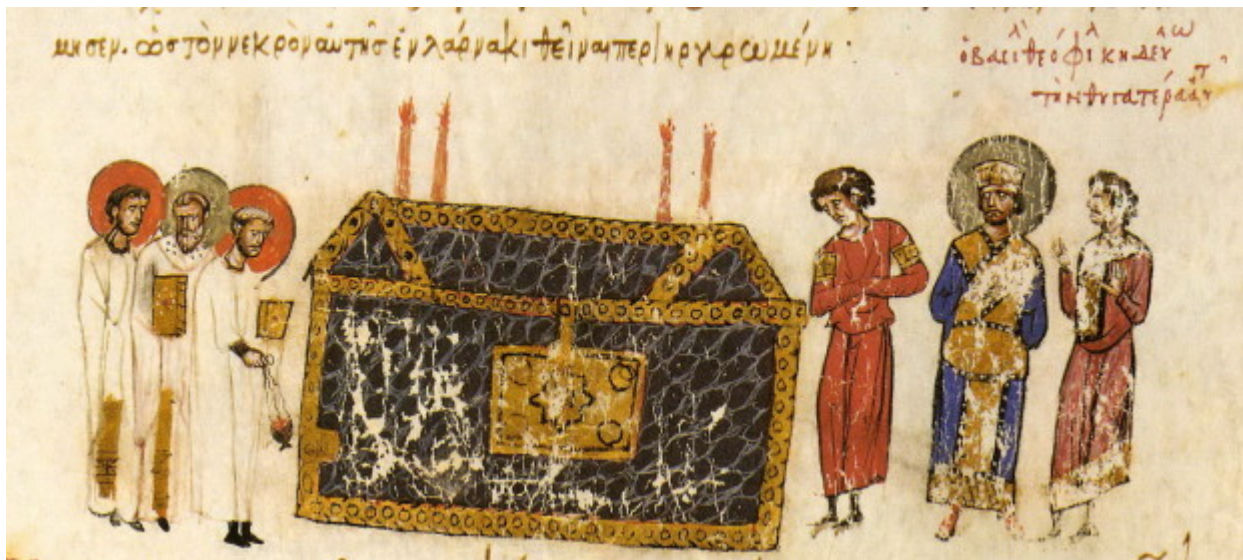 μησεν. ὡς τὸν νεκρὸν αὐτῆς ἐν λάρνακι θεῖναι περιηργυρωμένη·
ὁ βασιλ θεόφιλ κηδευ
τὴν θυγατέρα αὐτ